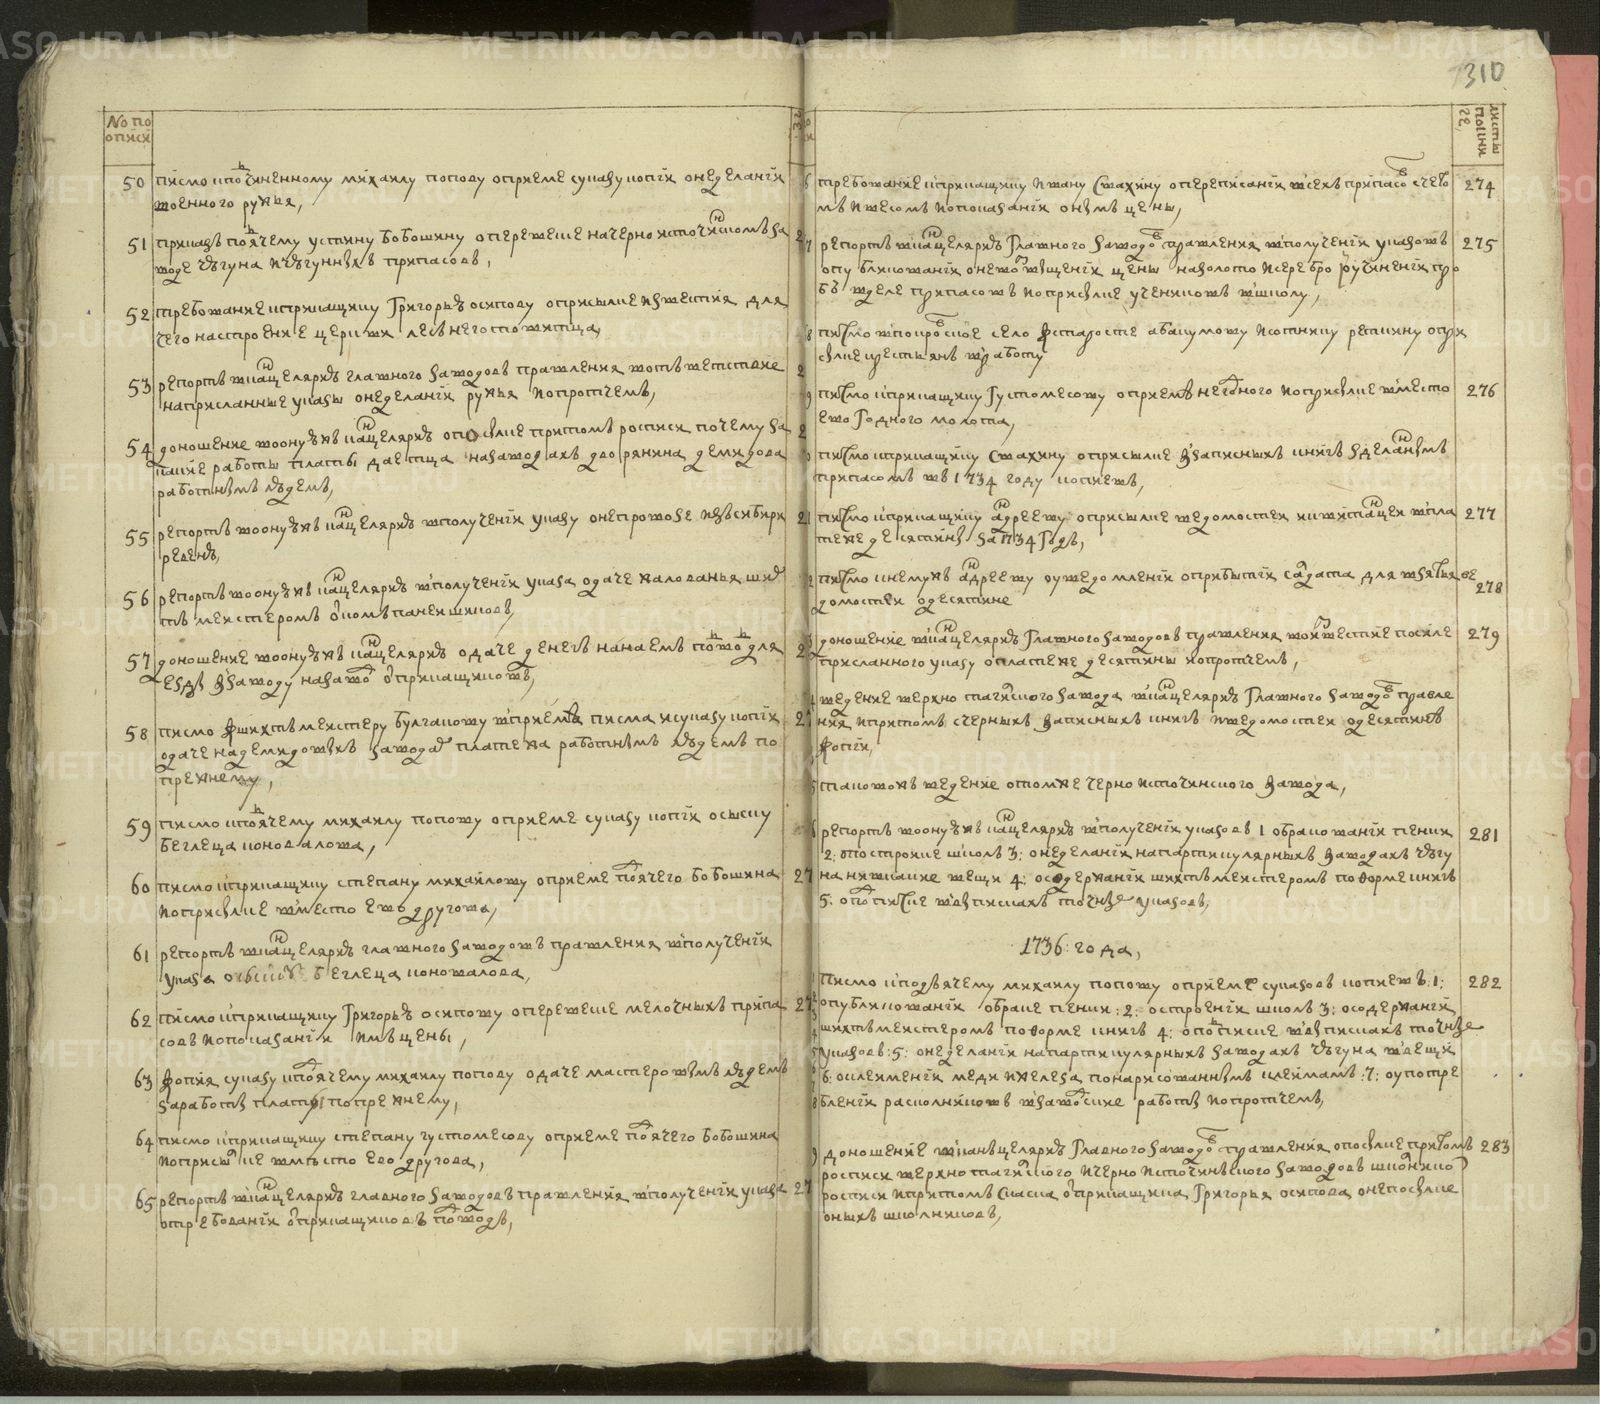 310
No по
описи
50 писмо и подчиненному михаилу попову о приеме с указу копiи о неделанiи
военного ружья,
51 приказъ подьячему устину бобошину о перевеске на черноисточинскомъ за
воде чюгуна и чюгунныхъ припасовъ,
52 требование и прикащику Григорью осипову о присылке известия для
чего на строение церкви лесъ не готовитца,
53 репортъ в канцелярию главного заводовъ правления в ответствие
на присланные указы о неделанiи ружья и о протчемъ,
54 доношение во оную жъ канцелярию о посылке при томъ росписи почему за
какие работы платы даетца на заводахъ дворянина демидова
работнымъ людемъ,
55 репортъ во оную жъ канцелярию в полученiи указу о непровозе изъ сибири
ревеню,
56 репортъ во оную жъ канцелярию в полученiи указа о даче жалованья ших
тъ мейстеромъ от комъпанейщиковъ,
57 доношение во оную жъ канцелярию о даче денегъ на наемъ подводъ для
езды з заводу на завод от прикащиковъ,
58 писмо к шихтъмейстеру булгакову в приеме писма и с указу копiи
о даче на демидовыхъ заводах платежа работнымъ людемъ по
прежнему,
59 писмо и подьячему михаилу попову о приеме с указу копiи о сыску
беглеца коновалова,
60 писмо и прикащику степану михайлову о приеме подьячего бобошина
и о присылке в место ево другова,
61 репортъ в канцелярию главного заводовъ правления в полученiи
указа о беглеца коновалова,
62 писмо и прикащику Григорью осипову о перевеске мелочныхъ припа
совъ и о показанiи имъ цены,
63 копия с указу и подьячему михаилу попову о даче мастеровымъ людемъ
за работы платы по прежнему,
64 писмо и прикащику степану густомесову о приеме подьячего бобошина
и о присылке вместо ево другова,
65 репортъ в канцелярию главного заводовъ правления в полученiи указа
о требованiи от прикащиковъ подводъ,
листы
по книге
требование и прикащику ивану свахину о переписанiи всехъ припасов счето
мъ и весомъ и о показанiи онымъ цены, 274
репортъ в канцелярию Главного заводов правления в полученiи указовъ 275
о цены на золото и серебро
бъ в деле припасовъ и о присылке учениковъ в школу,
писмо в покровское село к старосте абакумову и сотнику репкину о при
сылке крестьянъ в работу
писмо и прикащику Густомесову о приеме негодного и о присылке в место 276
ево годного молота,
писмо и прикащику свахину о присылке записныхъ книгъ зделанымъ
припасомъ въ 1734 году копиевъ,
писмо и прикащику андрееву о присылке ведомостей и квитанцей в пла 277
теже десятины за 1734 Годъ,
писмо и нему жъ андрееву о уведомленiи о прибытiи салдата для взятья ве
домостей о десятине 278
доношение в канцелярию Главного заводовъ правления во известие после 279
присланного указу о платеже десятины и о протчемъ,
ведение верхнотагилского завода в канцелярию Главного заводов правле
ния и при томъ счерныхъ записныхъ книгъ и ведомостей о десятине
копiи,
таковожъ ведение о томже черноисточинского завода,
репортъ во оную жъ канцелярию в полученiи указовъ 1 о браковании пенки 281
2: о постройке школъ 3: о неделанiи на партикулярныхъ заводахъ чюгу
на никакие вещи 4: о содержанiи шихтъмейстеромъ по форме книгъ
5: о подписке в выпискахъ точные указовъ,
1736: года,
писмо и подьячему михаилу попову о приеме с указовъ копиевъ: 1: 282
о публикованiи о браке пенки: 2: о строенiи школъ 3: о содержанiи
шихтъмейстеромъ по форме книгъ 4: о подписке в выпискахъ точные
указовъ: 5: о неделанiи на партикулярныхъ заводахъ чюгуна вещей
6: о клейменiи меди и железа по нарисованнымъ клеймамъ: 7: о употре
бленiи расколниковъ в заводские работы и о протчемъ,
доношение в канъцелярию Главного заводов правления о посылке при томъ 283
росписи верхнотагилского и черноисточинского заводовъ школнико
росписи и при томъ списка от прикащика Григорья осипова о непосылке
оныхъ школниковъ,